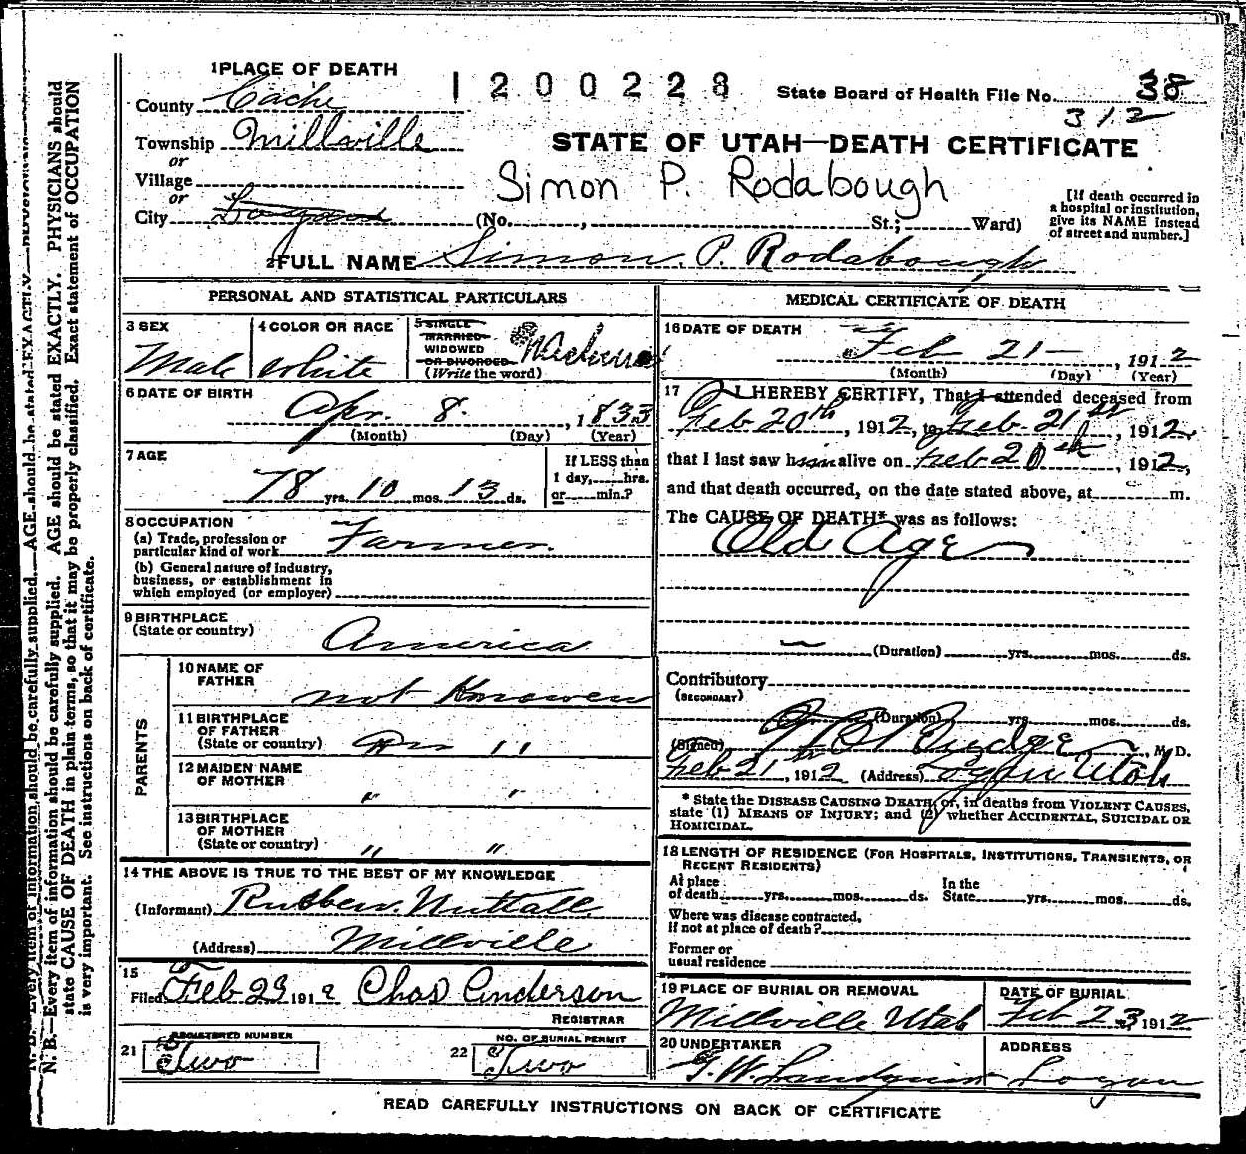 1 PLACE OF DEATH
1200228
State Board of Health File No. 38
312
County Cache
Township Millville
or
Village
or
City Logan
STATE OF UTAH—DEATH CERTIFICATE
Simon P. Rodabough
(No. , St.; Ward)
[If death occurred in
a hospital or institution,
give its NAME instead
of street and number.]
2 FULL NAME Simon. P. Rodabough
PERSONAL AND STATISTICAL PARTICULARS
3 SEX
Male
4 COLOR OR RACE
white
5 SINGLE
MARRIED
WIDOWED
OR DIVORCED
(Write the word)
6 DATE OF BIRTH
Apr. 8. , 1833
(Month) (Day) (Year)
7 AGE
78 yrs. 10 mos. 13 ds.
If LESS than
1 day, hrs.
or min.?
8 OCCUPATION
(a) Trade, profession or
particular kind of work Farmer.
(b) General nature of industry,
business, or establishment in
which employed (or employer)
9 BIRTHPLACE
(State or country) America
PARENTS
10 NAME OF
FATHER
not Knowen
11 BIRTHPLACE
OF FATHER
(State or country) " "
12 MAIDEN NAME
OF MOTHER " "
13 BIRTHPLACE
OF MOTHER
(State or country) " "
14 THE ABOVE IS TRUE TO THE BEST OF MY KNOWLEDGE
(Informant) Nuttall
(Address) Millville
15
Filed Feb 23 1912 Chas Anderson
REGISTRAR
21 REGISTERED NUMBER
Two
22 NO. OF BURIAL PERMIT
Two
MEDICAL CERTIFICATE OF DEATH
16 DATE OF DEATH
Feb 21— , 1912
(Month) (Day) (Year)
17 I HEREBY CERTIFY, That I attended deceased from
Feb 20th , 1912, to Feb. 21st , 1912,
that I last saw him alive on Feb 20th , 1912,
and that death occurred, on the date stated above, at m.
The CAUSE OF DEATH* was as follows:
Old Age
(Duration) yrs. mos. ds.
Contributory
(SECONDARY)
(Duration) yrs. mos. ds.
(Signed) Budge , M. D.
Feb 21st , 1912 (Address) Logan Utah
* State the DISEASE CAUSING DEATH, or, in deaths from VIOLENT CAUSES,
state (1) MEANS OF INJURY; and (2) whether ACCIDENTAL, SUICIDAL OR
HOMICIDAL.
18 LENGTH OF RESIDENCE (FOR HOSPITALS, INSTITUTIONS, TRANSIENTS, OR
RECENT RESIDENTS)
At place
of death yrs. mos. ds.
In the
State yrs. mos. ds.
Where was disease contracted,
if not at place of death?
Former or
usual residence
19 PLACE OF BURIAL OR REMOVAL
Millville Utah
DATE OF BURIAL
Feb 23 1912
20 UNDERTAKER
G. W. Lindquist
ADDRESS
Logan
READ CAREFULLY INSTRUCTIONS ON BACK OF CERTIFICATE
N. B.—Every item of information should be carefully supplied. AGE should be stated EXACTLY. PHYSICIANS should
state CAUSE OF DEATH in plain terms, so that it may be properly classified. Exact statement of OCCUPATION
is very important. See instructions on back of certificate.